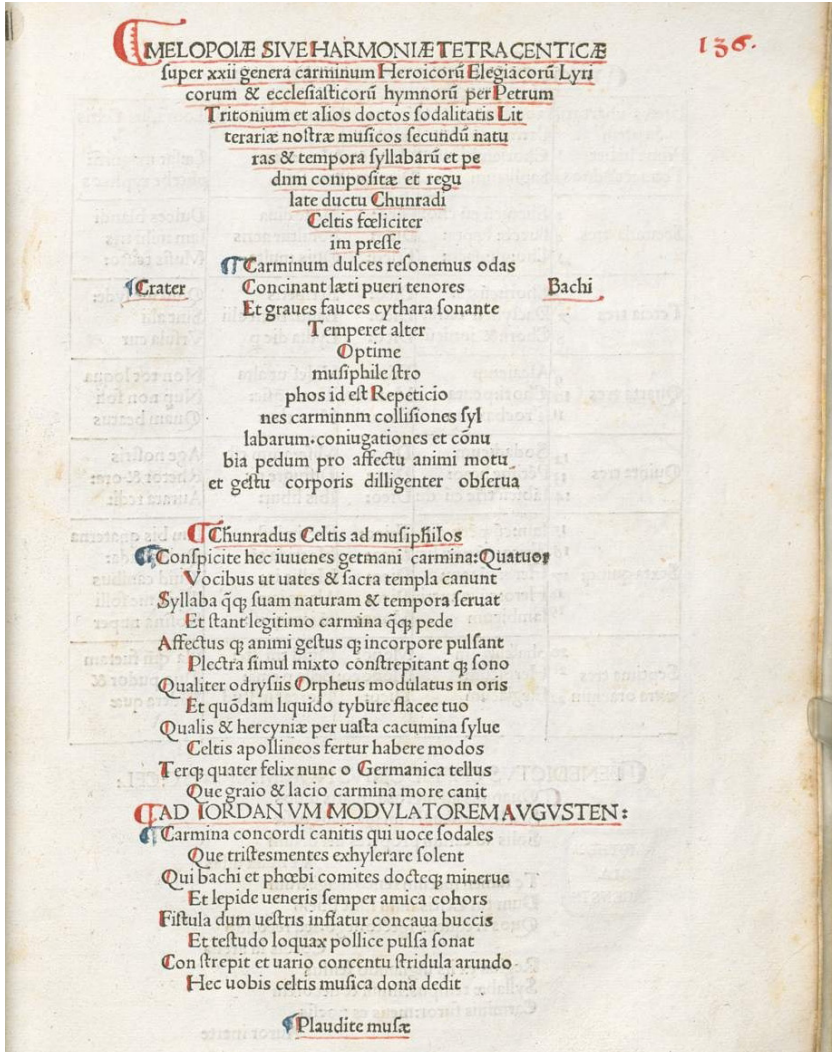 MELOPOIÆ SIVE HARMONIÆ TETRACENTICÆ
136.
super xxii genera carminum Heroicorū Elegiacorū Lyri
corum & ecclesiasticorū hymnorū per Petrum
Tritonium et alios doctos sodalitatis Lit
terariæ nostræ musicos secundū natu
ras & tempora syllabarū et pe
dnm compositæ et regu
late ductu Chunradi
Celtis fœliciter
im presse
¶Carminum dulces resonemus odas
¶Crater Concinant læti pueri tenores Bachi
Et graues fauces cythara sonante
Temperet alter
Optime
musiphile stro
phos id est Repeticio
nes carminnm collisiones syl
labarum.coniugationes et cōnu
bia pedum pro affectu animi motu
et gestu corporis dilligenter obserua
¶Chunradus Celtis ad musiphilos
¶Conspicite hec iuuenes getmani carmina:Quatuor
Vocibus ut uates & sacra templa canunt
Syllaba q̄q; suam naturam & tempora seruat
Et stant legitimo carmina q̄q; pede
Affectus q; animi gestus q; incorpore pulsant
Plectra simul mixto constrepitant q; sono
Qualiter odrysiis Orpheus modulatus in oris
Et quōdam liquido tybure flacce tuo
Qualis & hercyniæ per uasta cacumina sylue
Celtis apollineos fertur habere modos
Terq; quater felix nunc o Germanica tellus
Que graio & lacio carmina more canit
¶AD IORDAN VM MODVLATOREM AVGVSTEN:
¶Carmina concordi canitis qui uoce sodales
Que tristesmentes exhylerare solent
Qui bachi et phœbi comites docteq; minerue
Et lepide ueneris semper amica cohors
Fistula dum uestris inflatur concaua buccis
Et testudo loquax pollice pulsa sonat
Con strepit et uario concentu stridula arundo
Hec uobis celtis musica dona dedit
¶Plaudite musæ